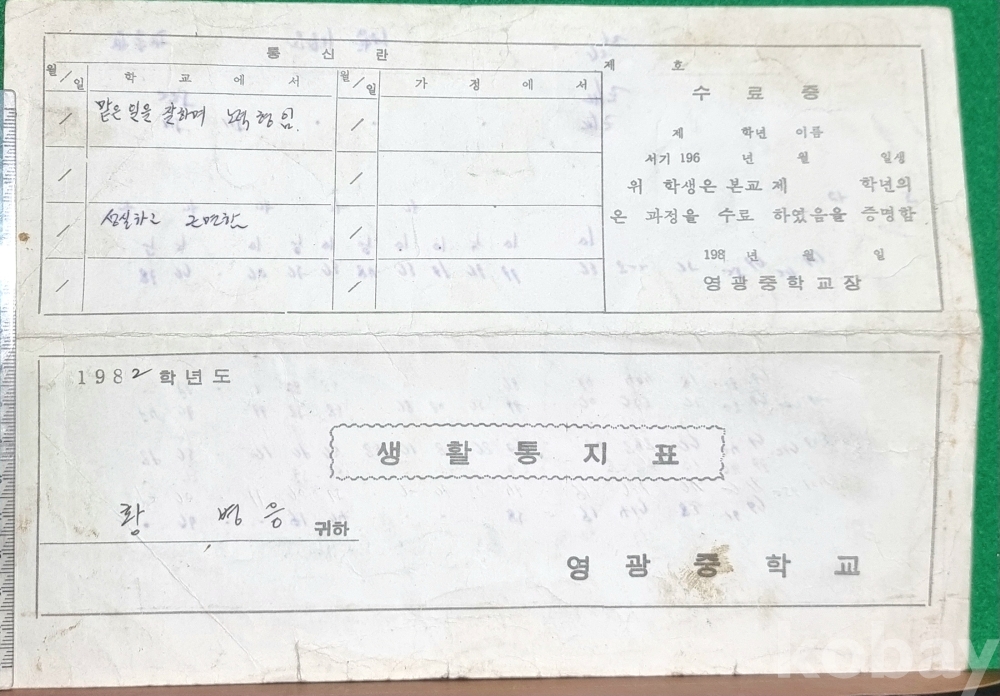 통 신 란
월/일 학 교 에 서 월/일 가 정 에 서
/ 맡은 일을 잘하며 노력형임. /
/ /
/ 성실하고 근면한 /
/ /
제 호
수 료 증
제 학년 이름
서기 196 년 월 일생
위 학생은 본교 제 학년의
온 과정을 수료 하였음을 증명함
198 년 월 일
영광중학교장
1982 학년도
생 활 통 지 표
황 병 응 귀하
영 광 중 학 교
kobay